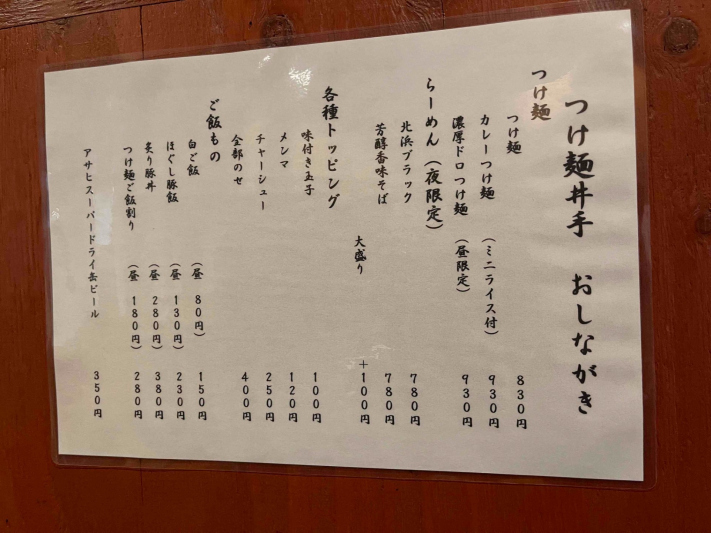 つけ麺井手 おしながき
つけ麺
つけ麺 830円
カレーつけ麺 (ミニライス付) 930円
濃厚ドロつけ麺 (昼限定) 930円
らーめん (夜限定)
北浜ブラック 780円
芳醇香味そば 780円
大盛り +100円
各種トッピング
味付き玉子 100円
メンマ 120円
チャーシュー 250円
全部のせ 400円
ご飯もの
白ご飯 (昼 80円) 150円
ほぐし豚飯 (昼 130円) 230円
炙り豚丼 (昼 280円) 380円
つけ麺ご飯割り (昼 180円) 280円
アサヒスーパードライ缶ビール 350円